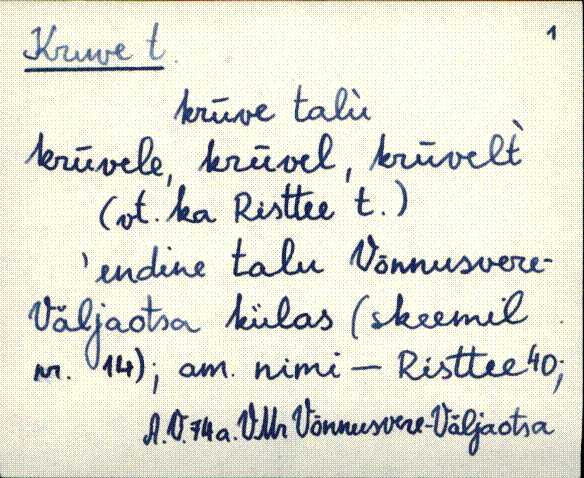 Kruve t. 1
krūve talù
krūvele, krūvel, krūvelt̀
(vt. ka Risttee t.)
'endine talu Võnnusvere-
Väljaotsa külas (skeemil
nr. 14); am. nimi — Risttee 40;
A.V. 74 a. VMr Võnnusvere-Väljaotsa